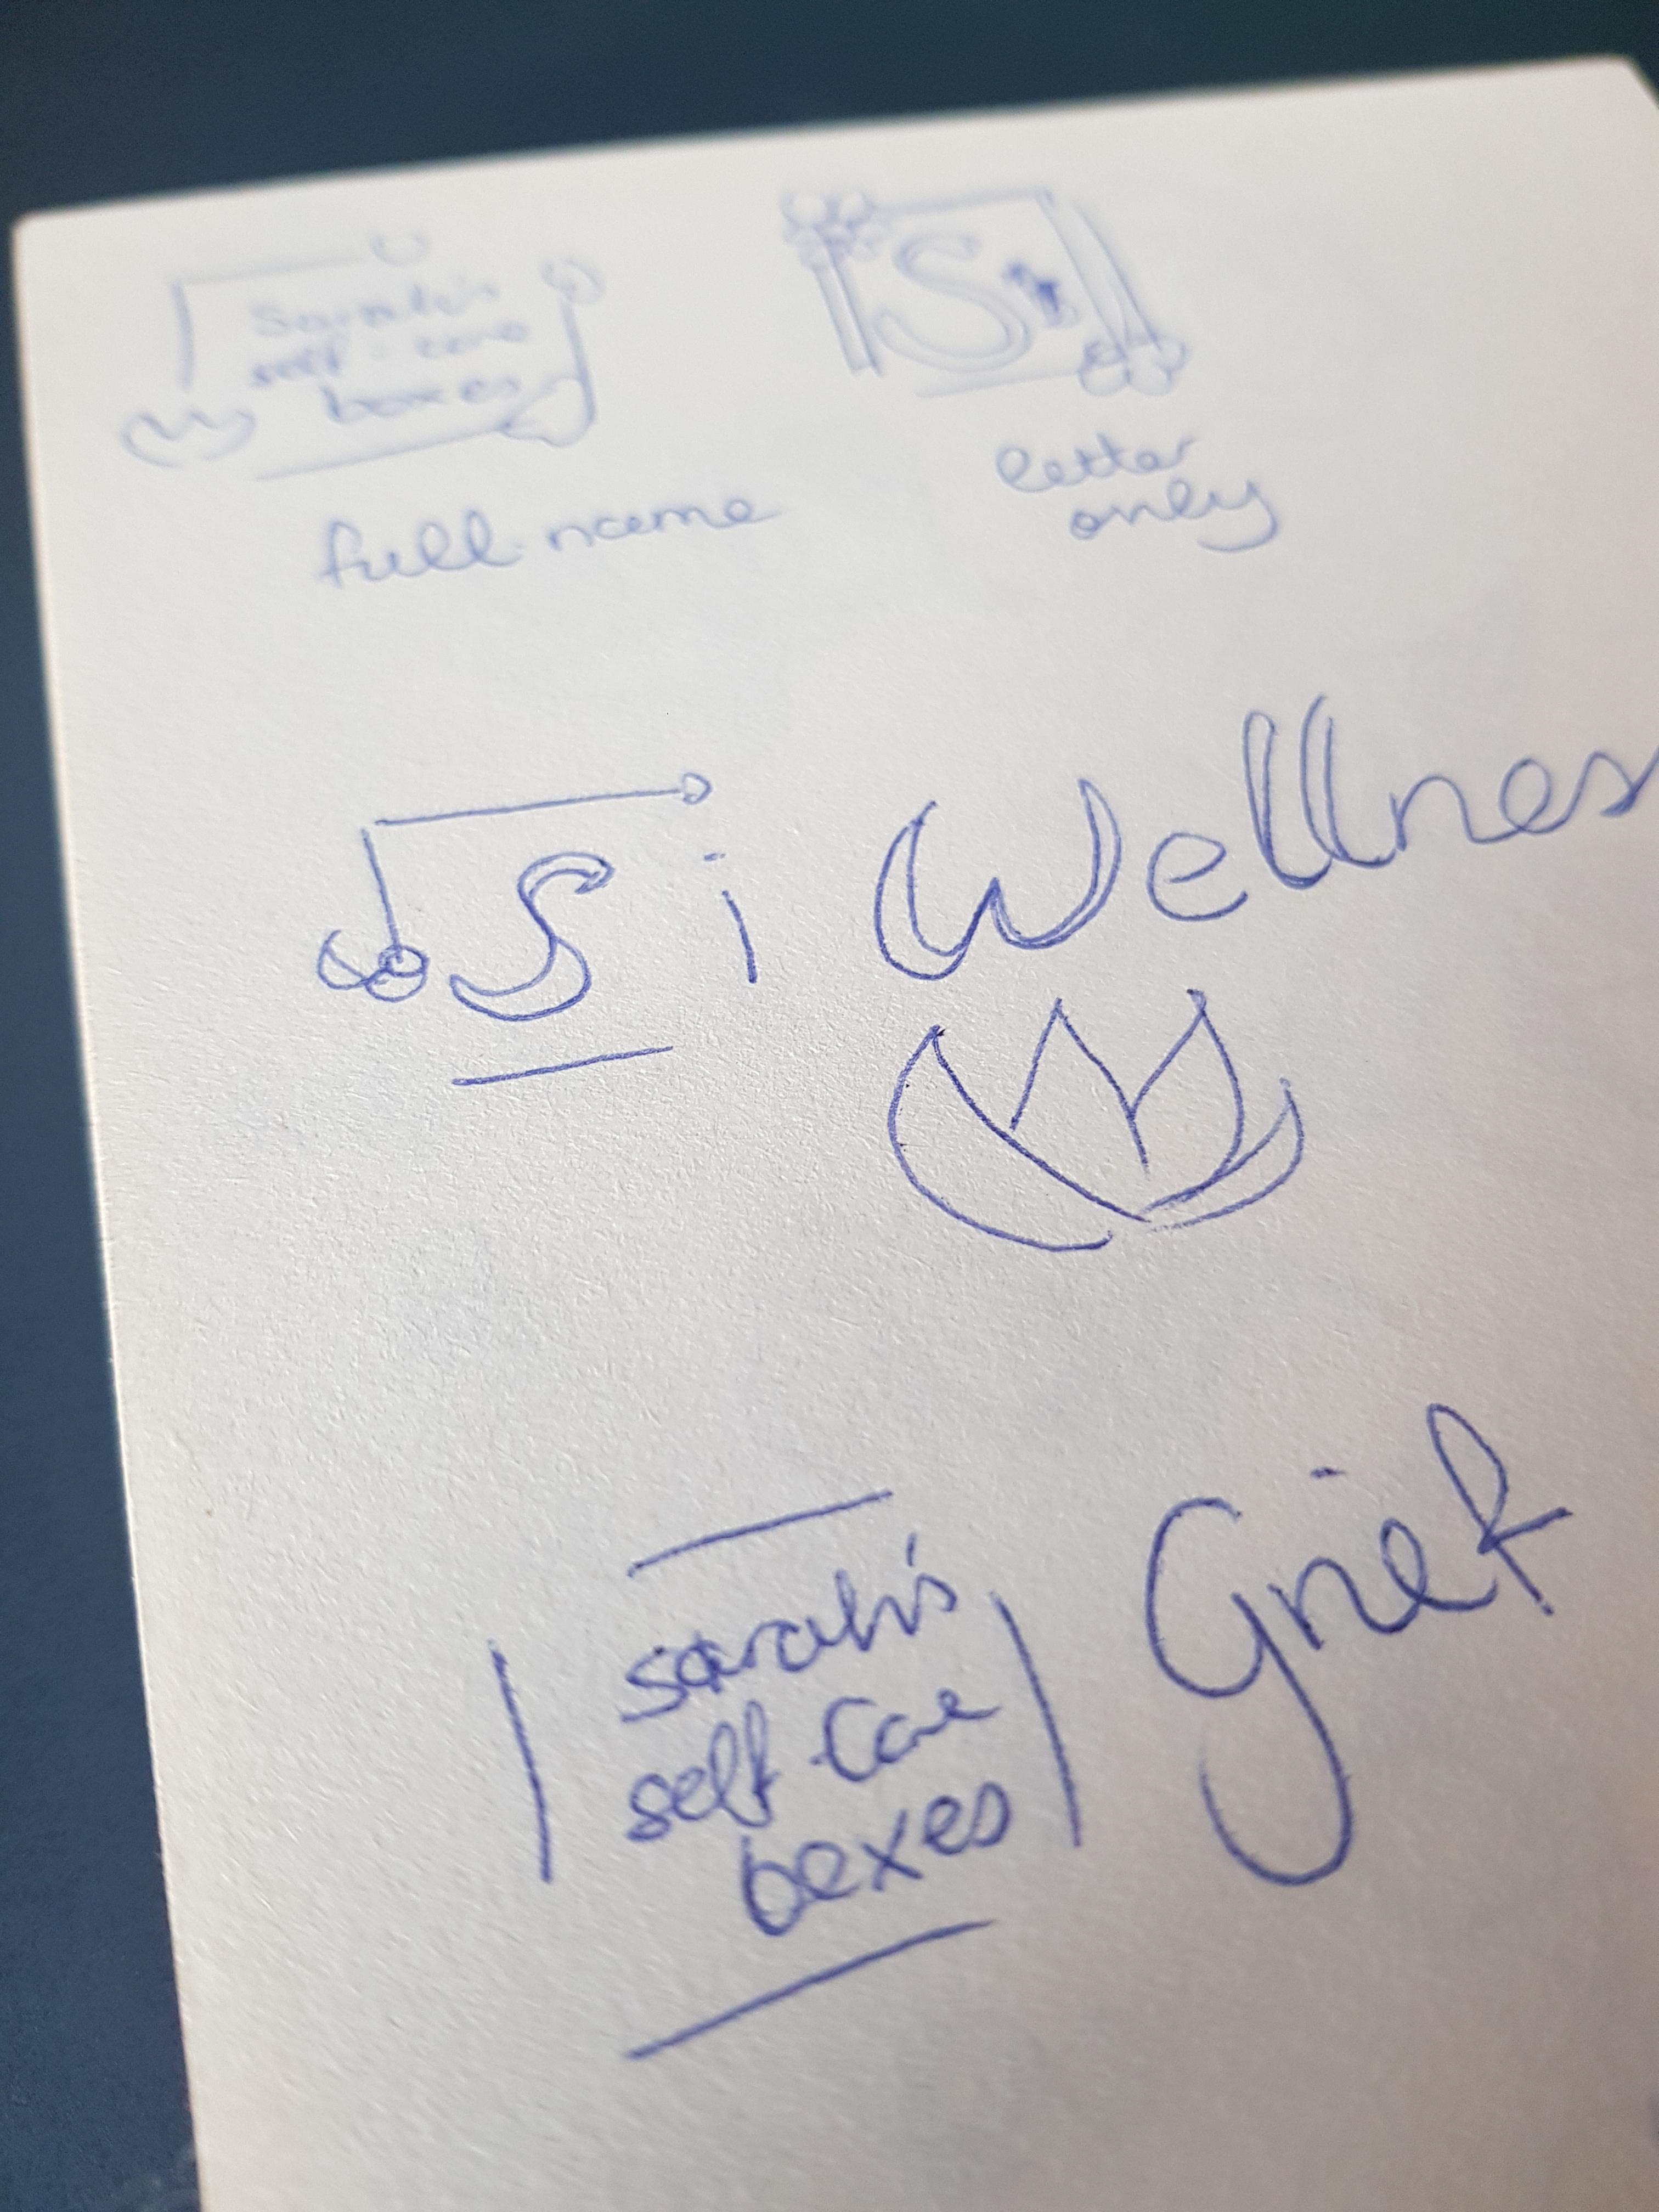 Sarah's
self-care
boxes
full name
S
letter
only
S i Wellness
sarah's
self-Care
boxes
Grief